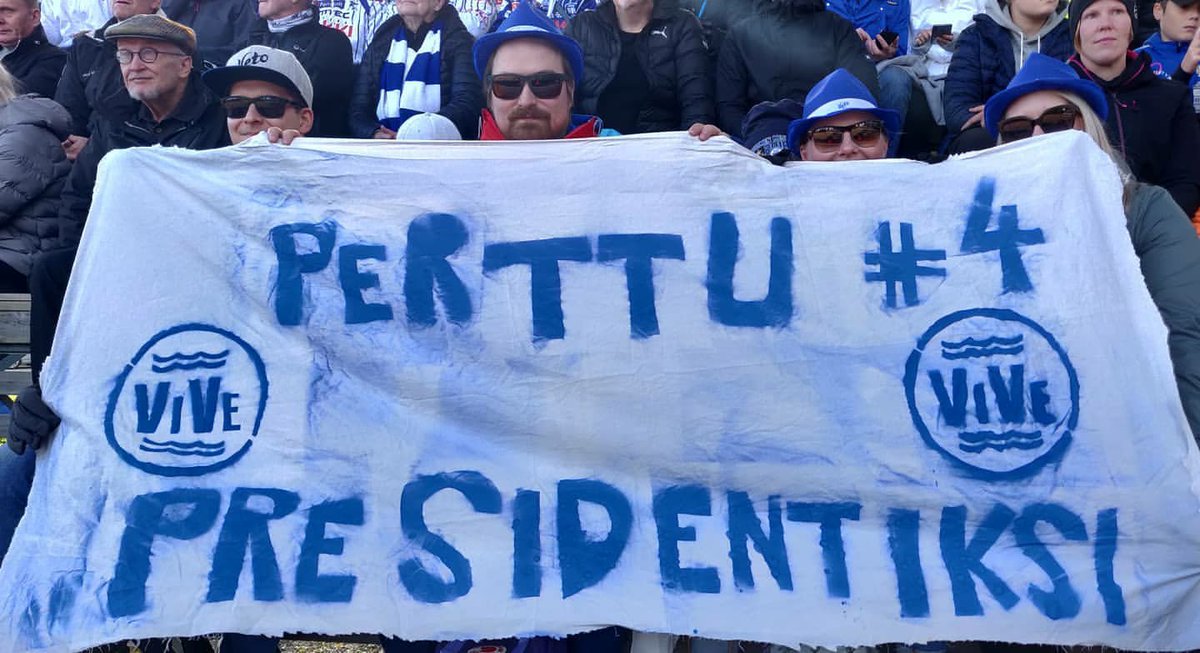 Veto
PERTTU #4
VIVE
VIVE
PRESIDENTIKSI